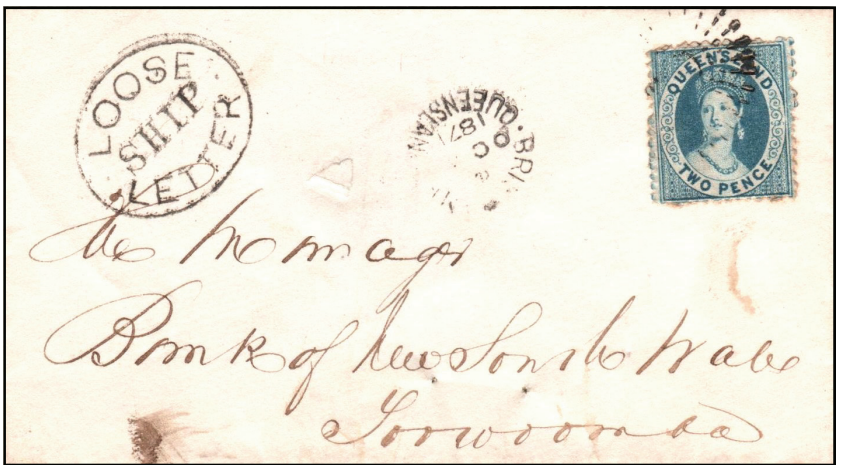 LOOSE
SHIP
LETTER
BRI
QUEENSLAN
OC
187
QUEENSLAND
TWO PENCE
The Manager
Bank of New South Wales
Toowoomba